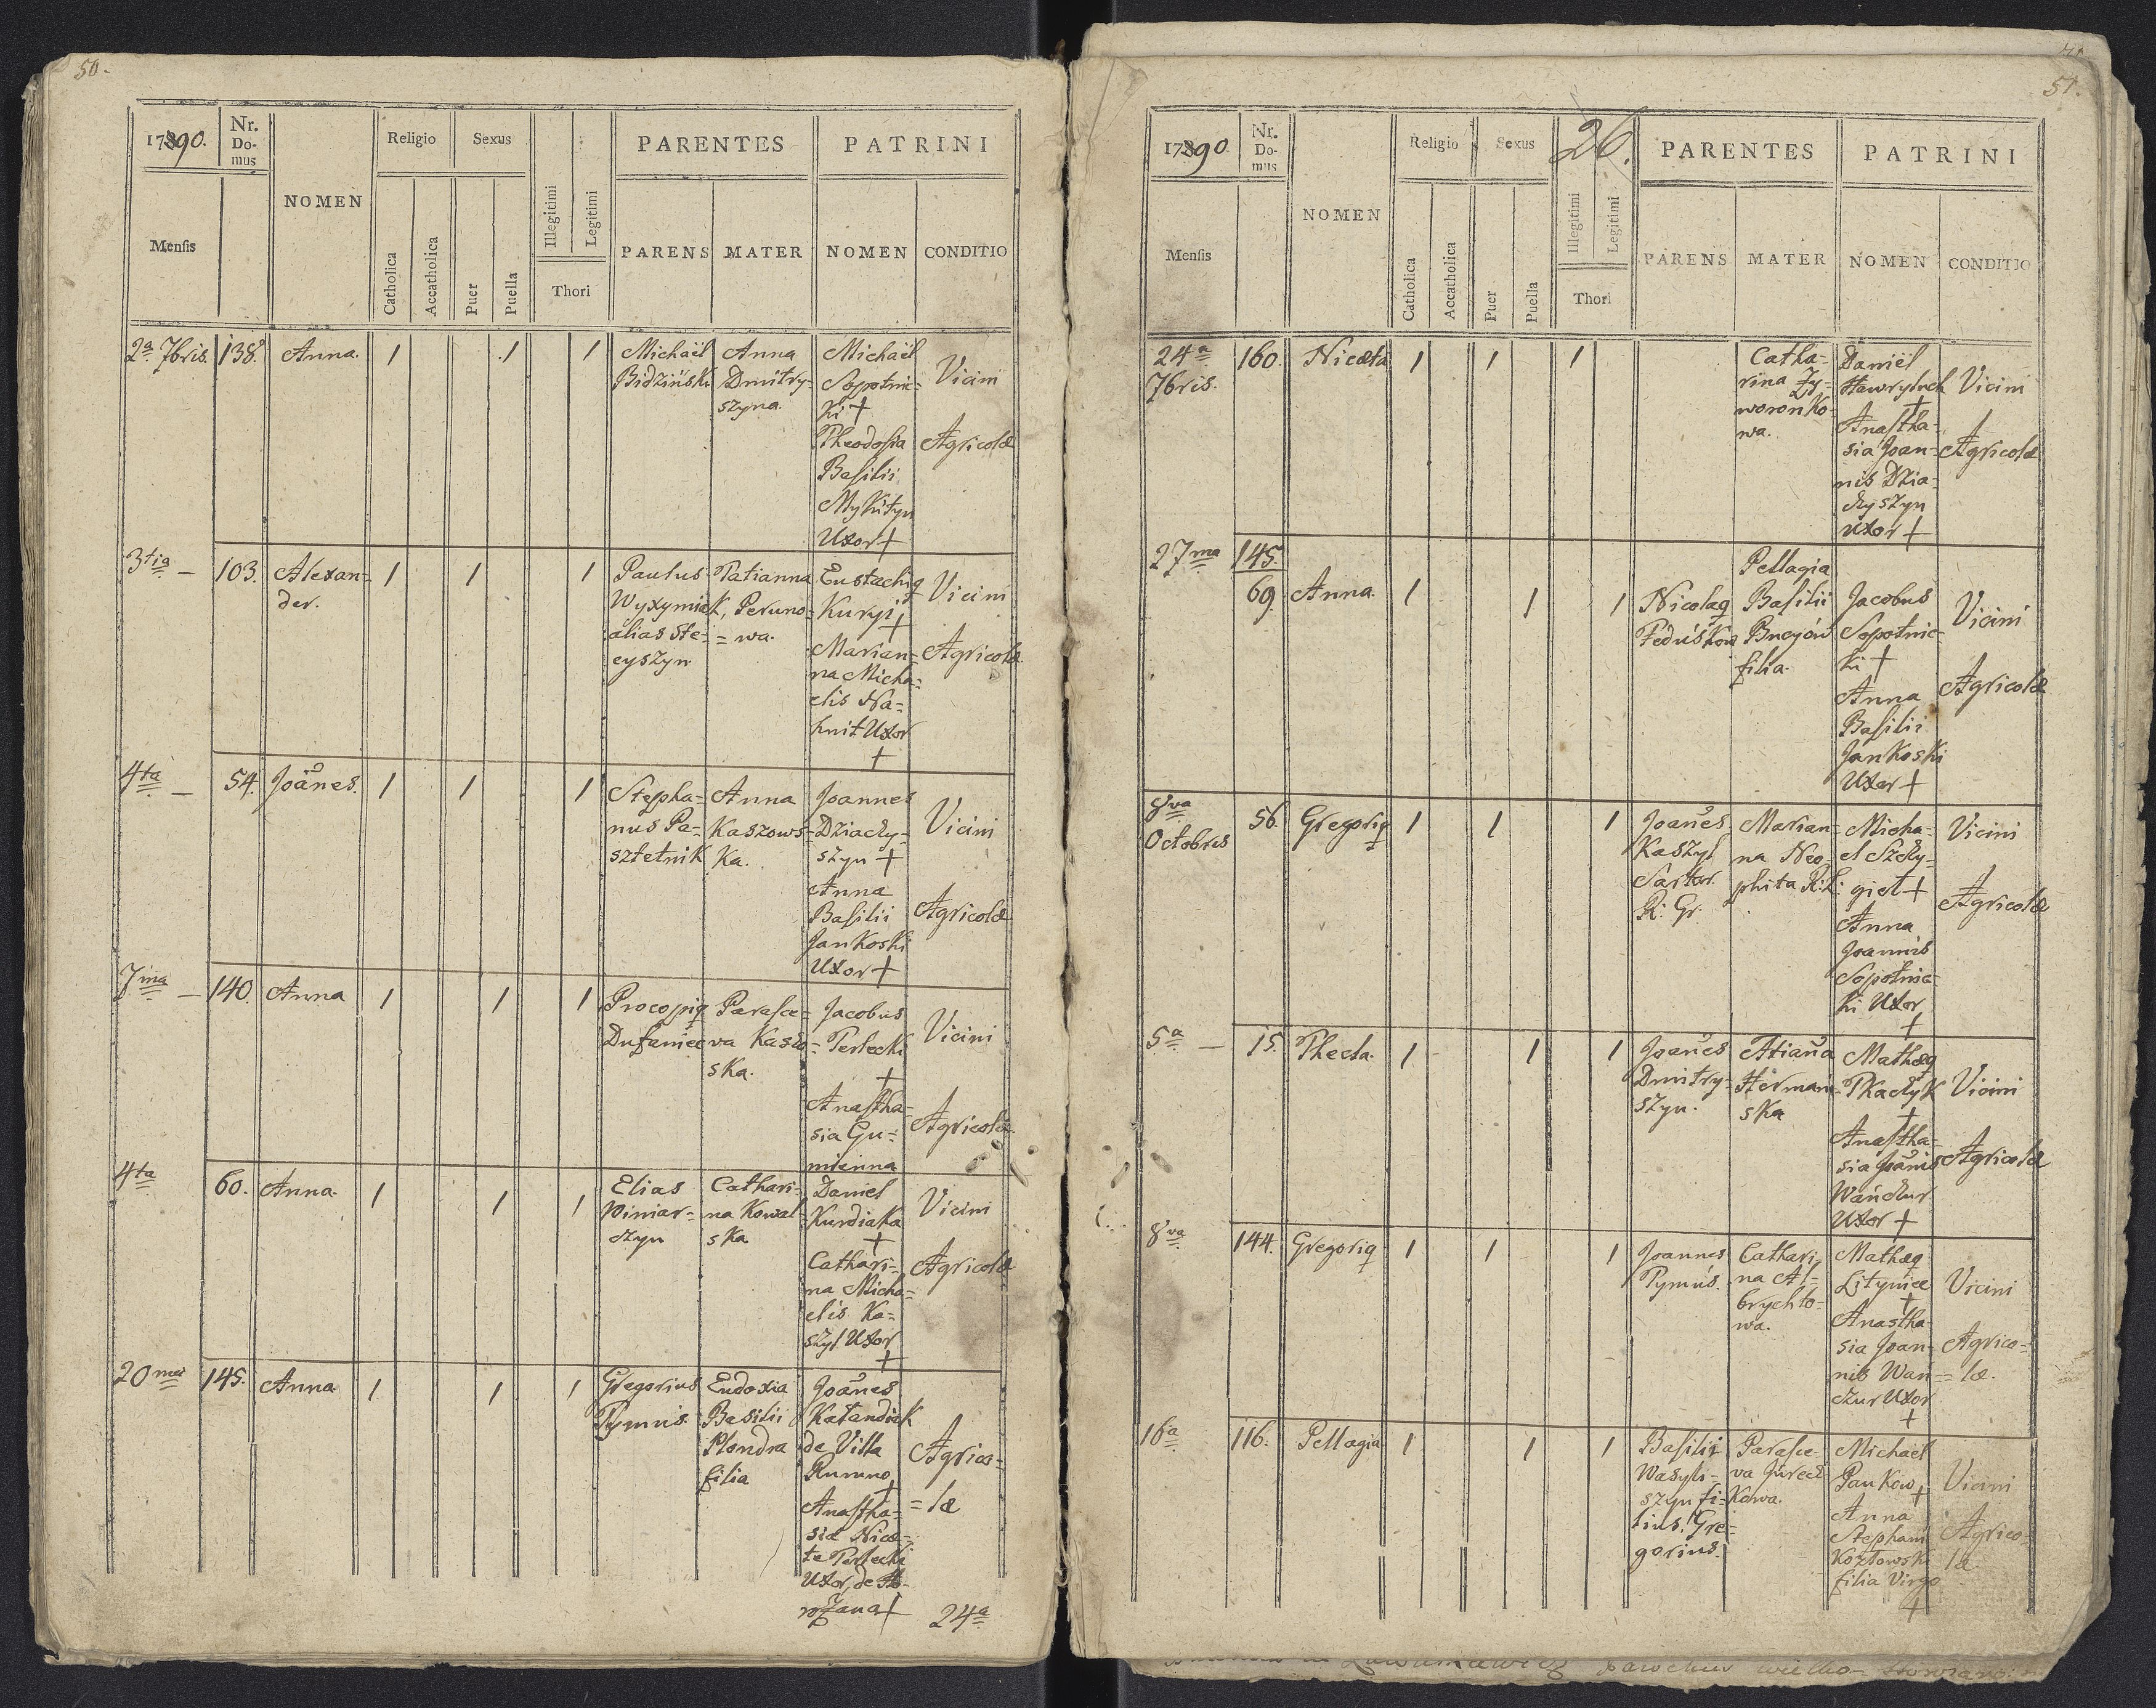 50.
1790.
Nr. Do-
mus
NOMEN
Religio
Sexus
PARENTES
PATRINI
Mensis
Catholica
Accatholica
Puer
Puella
Illegitimi
Legitimi
Thori
PARENS
MATER
NOMEN
CONDITIO
2a 7bris. 138. Anna. 1 1 1
Michaël
Bidziński
Anna
Dmitry-
szyna.
Michaël
Sopotnic-
ki +
Theodosia
Basilii
Mykityn
Uxor +
Vicini
Agricolæ
3tia — 103. Alexan-
der. 1 1 1
Paulus
Wyxymiak,
alias Ste-
cyszyn
Tatianna
Peruno-
=wa.
Eustachiq
Kuryi
+
Marian-
na Micha-
elis Ha-
hnit Uxor
+
Vicini
Agricolæ
4ta — 54. Joañes. 1 1 1
Stepha-
nus Pa-
sztetnik
Anna
Kaszows-
ka.
Joannes
Dziaczy-
szyn +
Anna
Basilii
Jankoski
Uxor +
Vicini
Agricolæ
7ma — 140. Anna 1 1 1
Procopiq
Dufaniec
Parasce-
va Kaszo-
ska.
Jacobus
Terlecki
+
Anastha-
sia Gu-
mienna
Vicini
Agricolæ
4ta 60. Anna. 1 1 1
Elias
Winiar-
czyn
Cathari-
na Kowal-
ska
Daniel
Kurdiaka
+
Cathari-
na Micha-
elis Ka-
szyl Uxor
+
Vicini
Agricolæ
20ma 145. Anna 1 1 1
Gregorius
Tymus.
Eudoxia
Basilii
Plondra
filia
Joañes
Kałandiak
de Villa
Rumno
+
Anastha-
sia Nice-
tæ Terlecki
Uxor, de Ho-
rożana +
Agrico-
=læ
24a
51.
1790
Nr.
Do-
mus
NOMEN
Religio
Sexus
26.
PARENTES
PATRINI
Mensis
Catholica
Accatholica
Puer
Puella
Illegitimi
Legitimi
Thori
PARENS
MATER
NOMEN
CONDITIO
24a
7bris. 160. Nicæta 1 1 1
Catha-
rina Zy-
woronko-
wa.
Daniël
Hawryluch
+
Anastha-
sia Joan-
nis Dzia-
czyszyn
Uxor +
Vicini
Agricolæ
27ma 145.
69. Anna. 1 1 1
Nicolaq
Feduśkow
Pellagia
Basilii
Bucyów
filia.
Jacobus
Sopotnic-
ki +
Anna
Basilii
Jankoski
Uxor +
Vicini
Agricolæ
8va
Octobris 56. Gregoriq 1 1 1
Joañes
Kaszyl
Sartor.
R: Gr.
Marian-
na Neo-
phita R:L:
Micha-
el Szczy-
giel +
Anna
Joannis
Sopotnic-
ki Uxor
+
Vicini
Agricolæ
5a — 15. Thecla. 1 1 1
Joañes
Dmitry-
szyn.
Atiaña
Herman-
ska
Mathæq
Tkaczyk
+
Anastha-
sia Joañis
Wańczur
Uxor +
Vicini
Agricolæ
8va 144. Gregoriq 1 1 1
Joannes
Tymus.
Cathari-
na Al-
brychto-
wa.
Mathæq
Lityniec
+
Anastha-
sia Joan-
nis Wań-
czur Uxor
+
Vicini
Agrico-
=læ.
16a 116. Pellagia 1 1 1
Basiliq
Wasyli-
szyn fi-
lius Gre-
gorius.
Parasce-
va Jurecz-
kowa.
Michaël
Pankow
+
Anna
Stephani
Kozłowski
filia Virgo
+
Vicini
Agrico-
læ